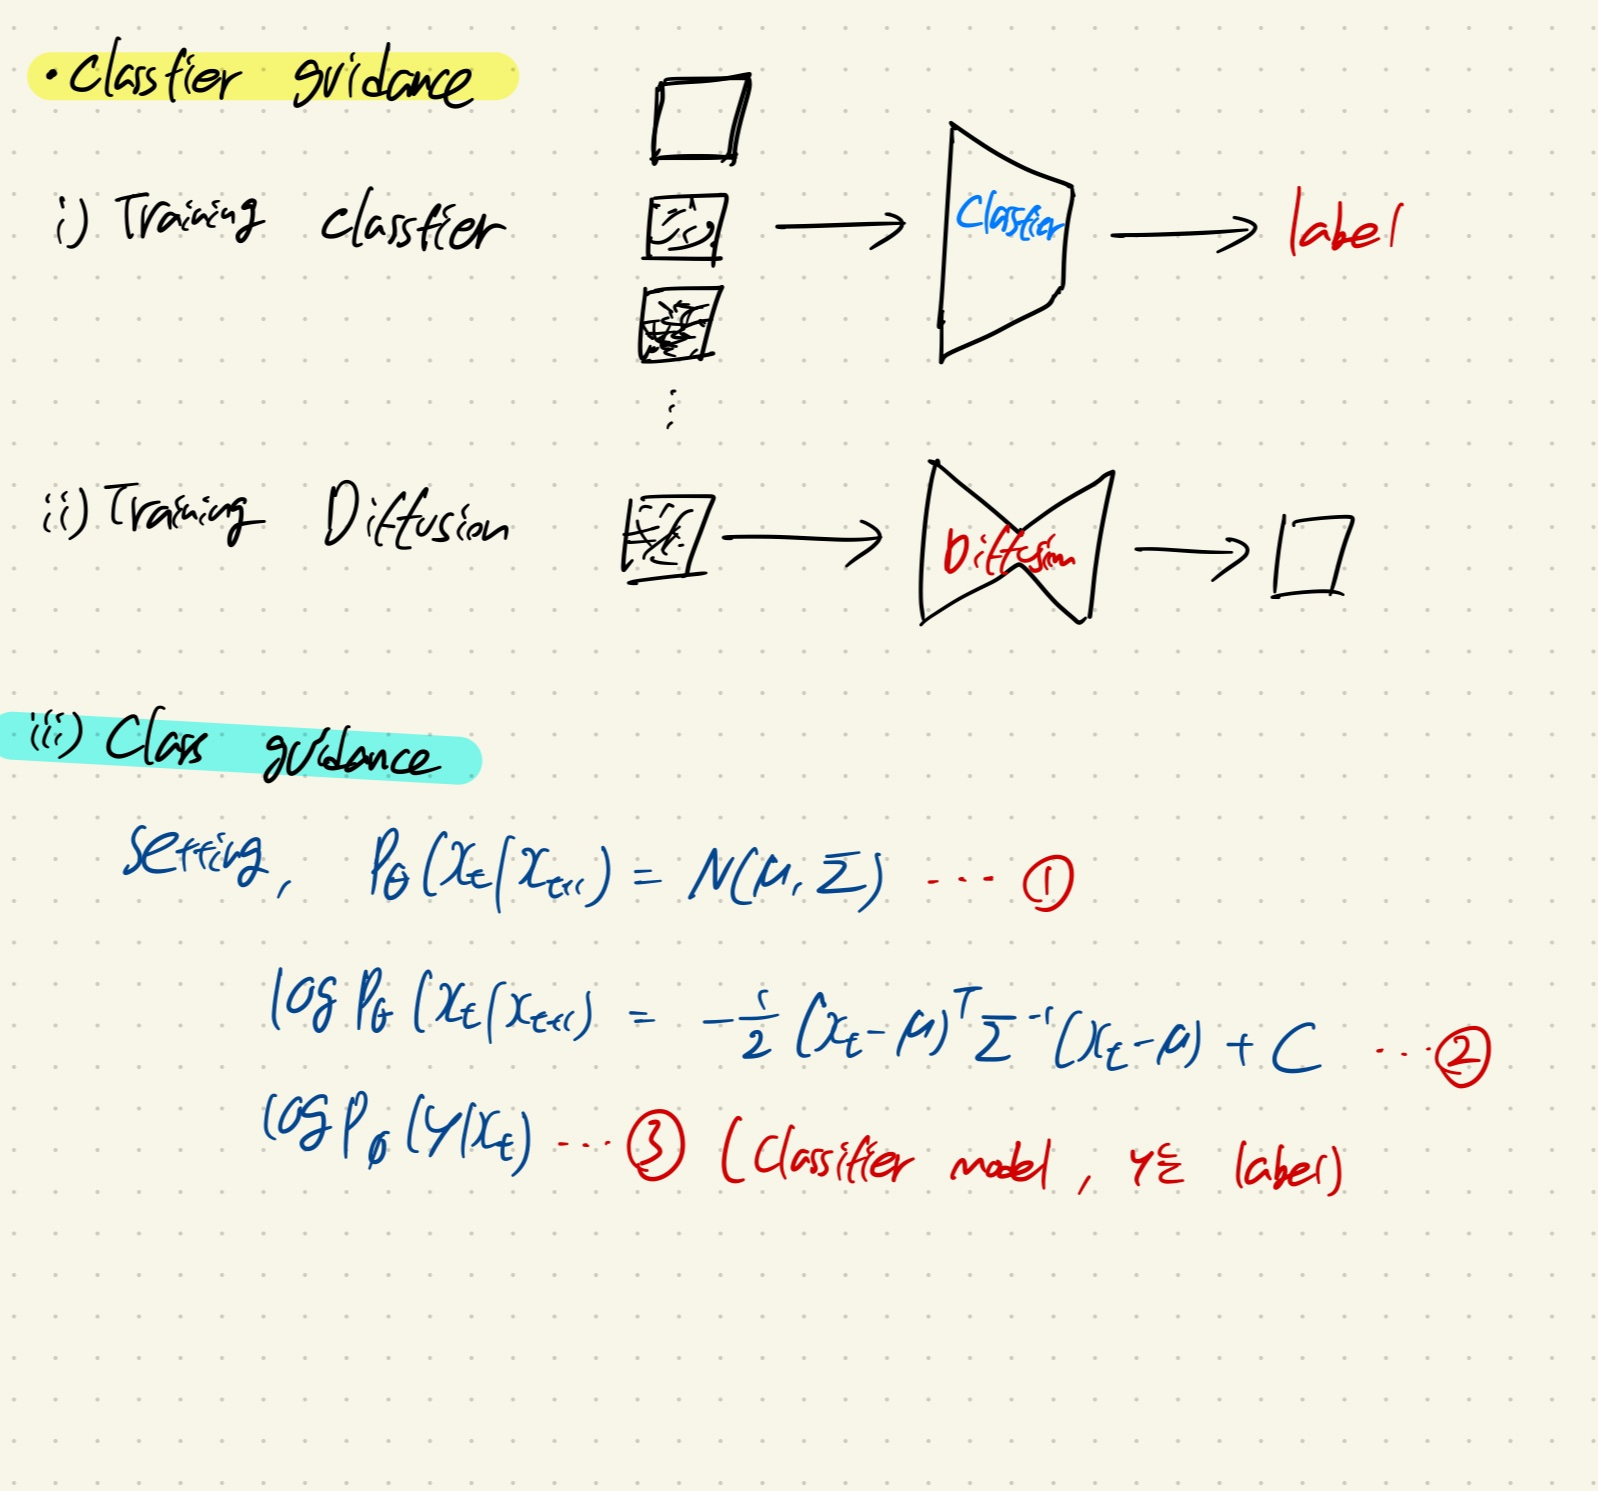 · Classfier guidance
i) Training classfier
Classfier
label
ii) Training Diffusion
Diffusion
iii) Class guidance
Setting, Pθ(xt|xt+1) = N(μ, Σ) ... ①
log Pθ(xt|xt+1) = -1/2 (xt-μ)ᵀ Σ⁻¹ (xt-μ) + C ... ②
log Pφ(y|xt) ... ③ (Classifier model, y는 label)